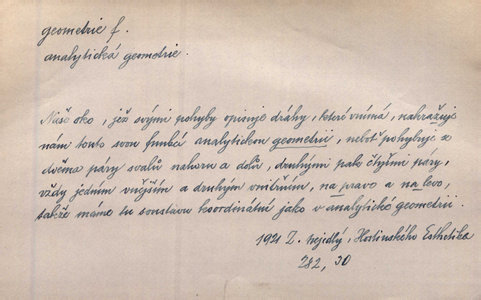 geometrie f.
analytická geometrie.
Naše oko, jež svými pohyby opisuje dráhy, které vnímá, nahražuje
nám touto svou funkcí analytickou geometrii, neboť pohybuje se
dvěma páry svalů nahoru a dolů, druhými pak čtyřmi páry,
vždy jedním vnějším a druhým vnitřním, na pravo a na levo,
takže máme tu soustavu koordinátní jako v analytické geometrii.
1921 Z. Nejedlý, Hostinského Esthetika
282, 30